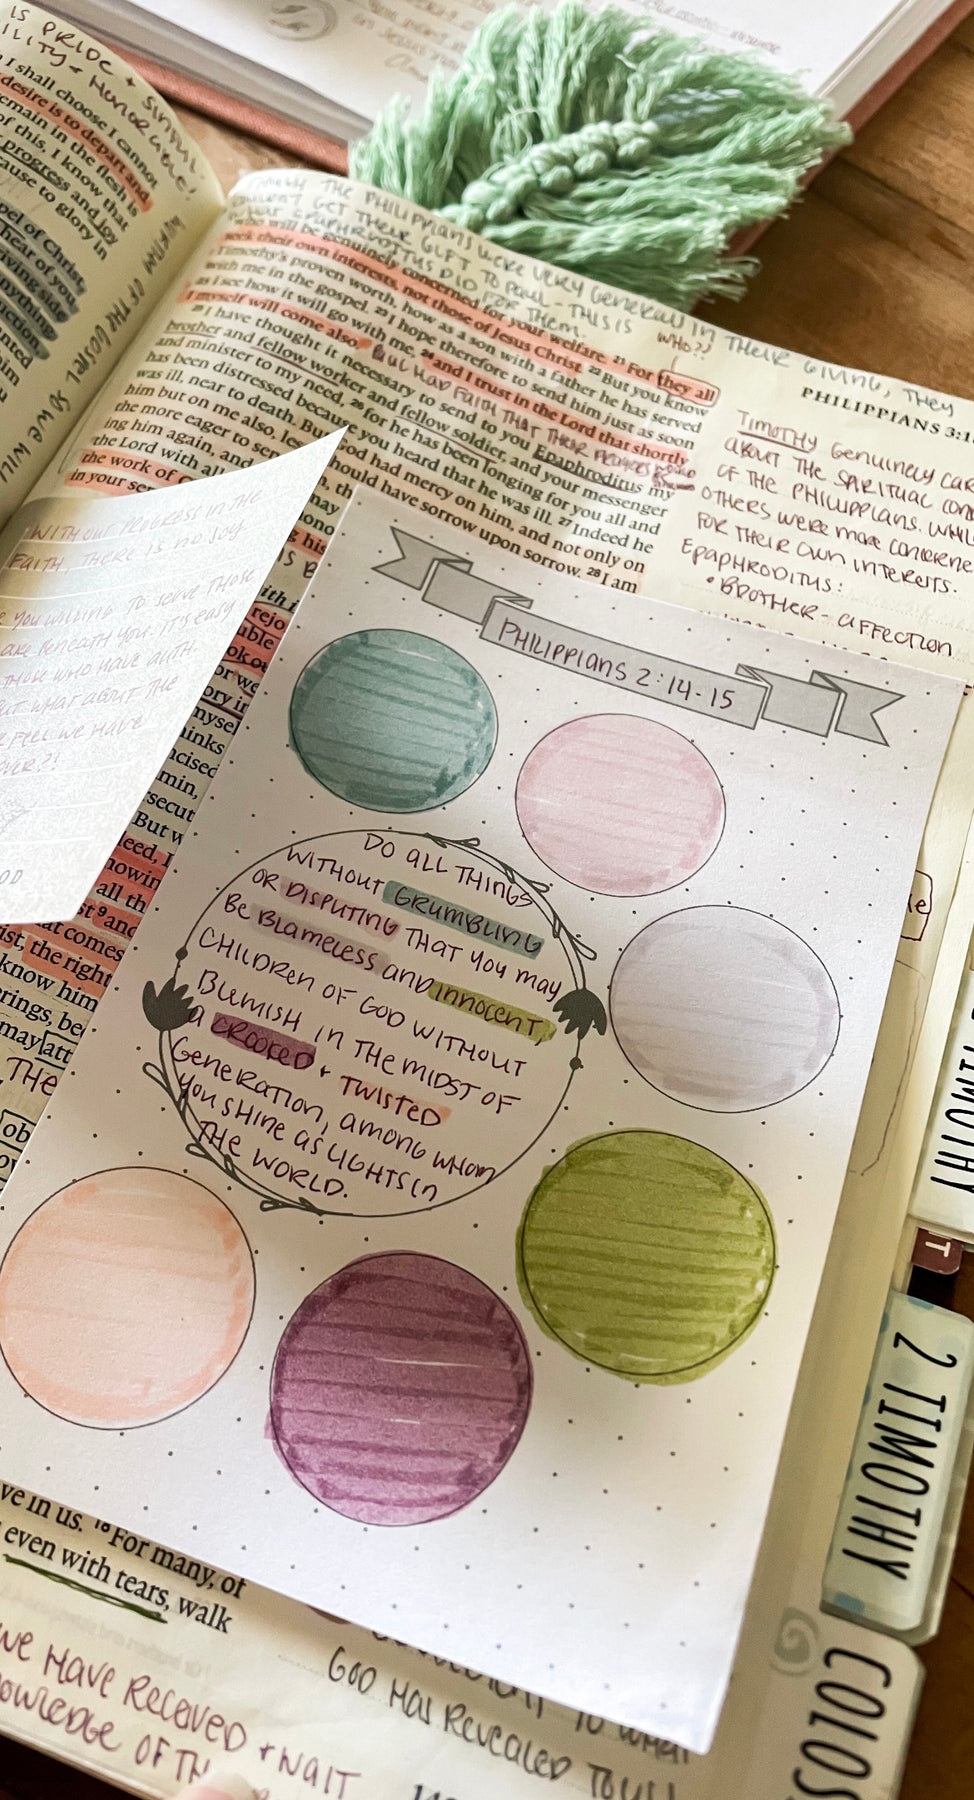 IS PRIDE + SINFUL
HUMILITY + HONORABLE!
I shall choose I cannot
desire is to depart and
remain in the flesh is
of this, I know that
progress and joy
cause to glory in
pel of Christ,
hear of you
anything
him
THE PHILIPPIANS WERE VERY GENEROUS IN THEIR GIVING, THEY
DIDN'T GET THEIR GIFT TO PAUL - THIS IS
WHAT EPAPHRODITUS DID FOR THEM.
WHO??
who will be genuinely concerned for your welfare. 21 For they all
seek their own interests, not those of Jesus Christ. 22 But you know
Timothy's proven worth, how as a son with a father he has served
with me in the gospel. 23 I hope therefore to send him just as soon
as I see how it will go with me, 24 and I trust in the Lord that shortly
I myself will come also.
PAUL HAD FAITH THAT THEIR PRAYERS
25 I have thought it necessary to send to you Epaphroditus my
brother and fellow worker and fellow soldier, and your messenger
and minister to my need, 26 for he has been longing for you all and
has been distressed because you heard that he was ill. 27 Indeed he
was ill, near to death. But God had mercy on him, and not only on
him but on me also, les should have sorrow upon sorrow. 28 I am
the more eager to sen
ing him again, and
the Lord with all
the work of C
in your ser
PHILIPPIANS 3:1
TIMOTHY GENUINELY CAR
ABOUT THE SPIRITUAL CON
OF THE PHILIPPIANS. WHIL
OTHERS WERE MORE CONCERNE
FOR THEIR OWN INTERESTS.
EPAPHRODITUS:
• BROTHER - AFFECTION
WITHOUT PROGRESS IN THE
FAITH, THERE IS NO JOY.
YOU WILLING TO SERVE THOSE
ARE BENEATH YOU. IS EASY
THOSE WHO HAVE AUTH.
BUT WHAT ABOUT THE
WE FEEL WE HAVE
OVER?!
PHILIPPIANS 2:14-15
DO ALL THINGS
WITHOUT GRUMBLING
OR DISPUTING THAT YOU MAY
BE BLAMELESS AND INNOCENT,
CHILDREN OF GOD WITHOUT
BLEMISH IN THE MIDST OF
A CROOKED + TWISTED
GENERATION, AMONG WHOM
YOU SHINE AS LIGHTS IN
THE WORLD.
rejo
uble
ook ou
or we
ory in
myself
hinks
ncised
min,
rsecut
But w
deed, I
nowin
all th
st 9 and
at comes
ist, the right
know him
erings, be
may att
THE
ob
ve in us. 18 For many, of
even with tears, walk
WE HAVE RECEIVED + WAIT
KNOWLEDGE OF TH
TO WHAT
GOD HAS REVEALED TO US!
TIMOTHY
T
2 TIMOTHY
COLOS